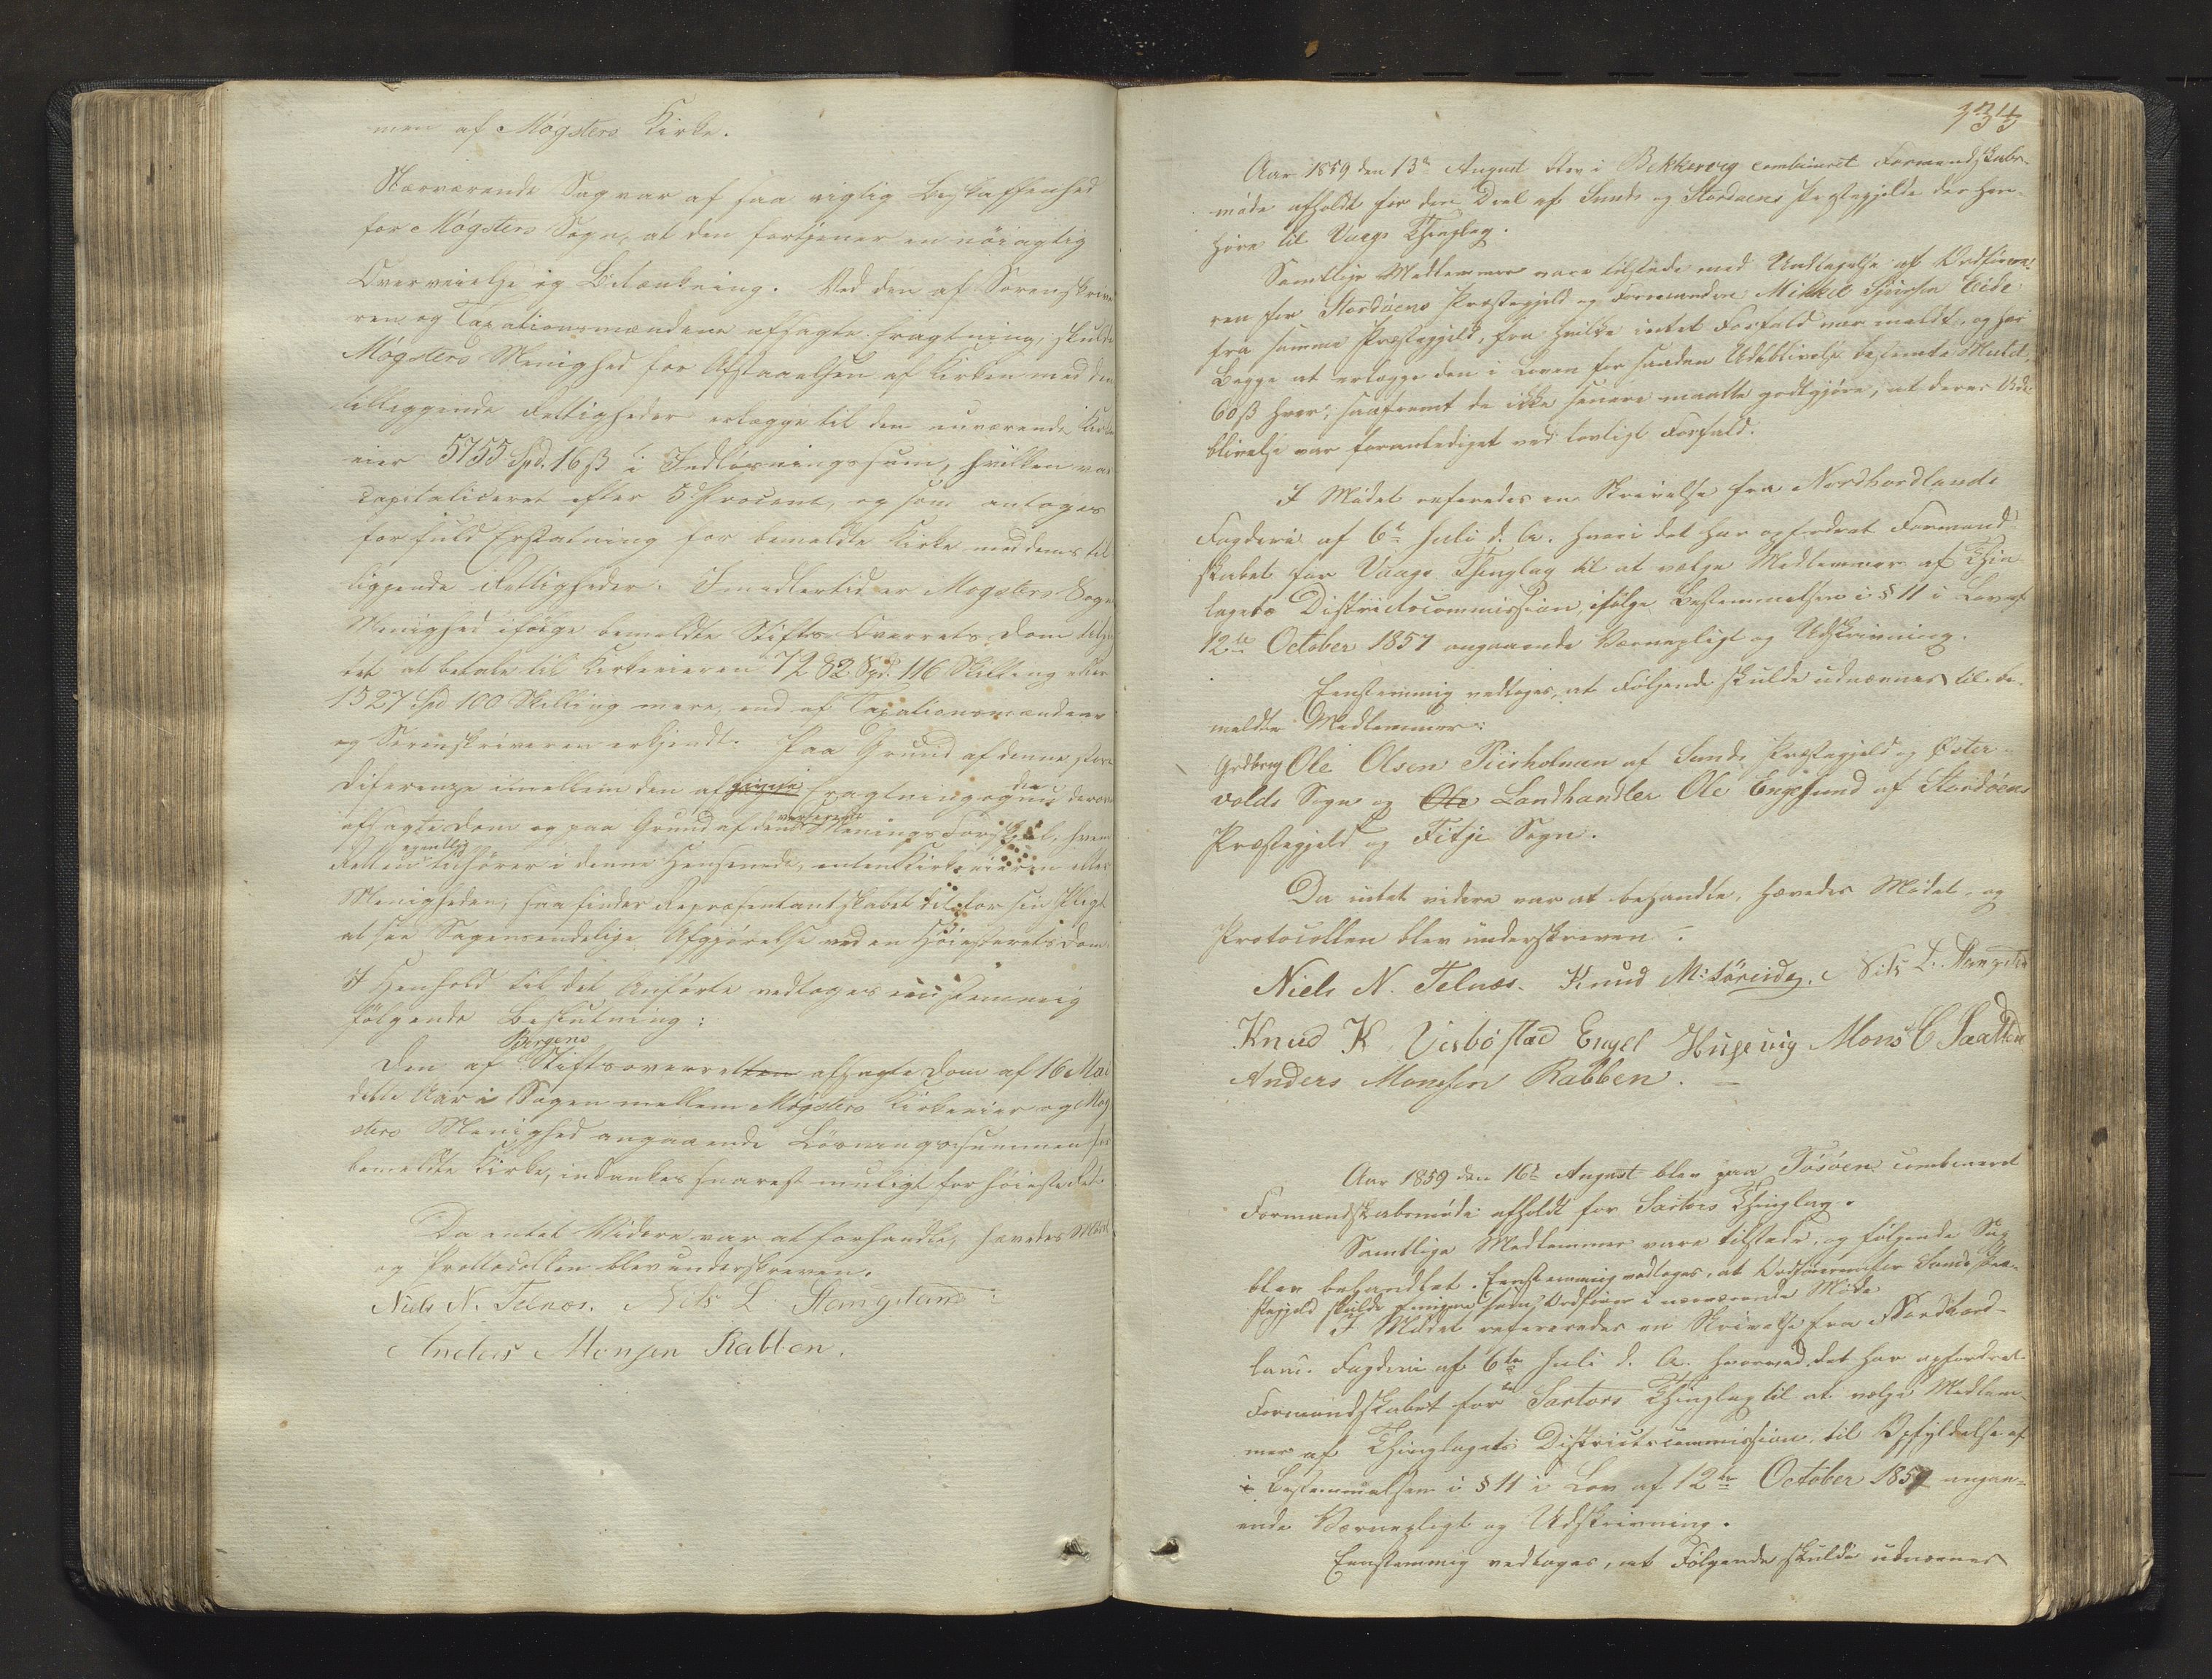 men af Møgsters Kirke.
Nærværende Sag var af saa vigtig Beskaffenhed
for Møgsters Sogn, at den fortjener en nöiagtig
Overveielse og Betænkning. Ved den af Sorenskrive
ren og Taxationsmændene afsagte fragtning, skulde
Møgsters Menighed for Afstaaelsen af Kirken med den
tilliggende Rettigheder erlægge til den nuværende Kirke
eier 5755 Spd. 16 ß i Indløsningssum, hvilken var
capitaliceret efter 5 Procent, og som antoges
for fuld Erstatning for bemeldte Kirke med dens til
liggende Rettigheder. Imidlertid er Mogsters Sogns
Menighed ifölge bemeldte Stifts Overrets Dom
tet at betale til Kirkeeieren 7282 Spd. 116 Skilling eller
1527 Spd 100 Skilling mere, end af Taxationsmændene
og Sorenskriveren erkjendt. Paa Grund af denne store
Diferenze imellem den af fragtning og den
afsagte Dom og paa Grund af den Menings Forskjel, hvem
Retten egentlig tilhører i denne Henseende, enten Kirkeeieren eller
Menigheden, saa finder Repræsentantskabet det for sin Pligt
at see Sagens endelige Afgjörelse ved en Höiesterets Dom.
I Henhold til det Anførte vedtoges eenstemmig
fölgende Beslutning:
Den af Bergens Stiftsoverretten afsagte Dom af 16 Mai
dette Aar i Sagen mellem Møgsters Kirkeeier og Møg
sters Menighed angaaende Løsningssummen for
bemeldte Kirke, indankes snarest muligt for Höiesteret.
Da intet Videre var at forhandle, hævedes Mödet
og Prottocollen blev underskreven.
Niels N. Telnæs. Nils L. Stangeland
Anders Monsen Rabben.
134
Aar 1859 den 13de August blev i Bekkervig combineret Formandskabs-
möde afholdt for den Deel af Sunds og Stordöens Præstegjelde der hen-
höre til Vaags Thinglag.
Samtlige Medlemmer vare tilstede med Undtagelse af Ordföre-
ren for Stordöens Præstegjeld og Formanden Mikkel Eide
fra samme Præstegjeld, fra hvilke intet Forfald var meldt, og har
Begge at erlægge den i Loven for saadan Udeblivelse bestemte Mulct,
60 ß hver, saafremt de ikke senere maatte godtgjöre, at deres Ude
blivelse var foranlediget ved lovligt Forfald.
I Mödet refererdes en Skrivelse fra Nordhordlands
Fogderi af 6te Juli d. A. hvori det har opfordret Formand
skabet for Vaags Thinglag til at vælge Medlemmer af Thin
lagets Districtscommission, ifölge Bestemmelsen i § 11 i Lov af
12te October 1857 angaaende Værnepligt og Udskrivning.
Eenstemmig vedtoges, at Følgende skulde udnævnes til be-
meldte Medlemmer:
Grdbrug Ole Olsen Piirholmen af Sunds Præstegjeld og Øster-
volds Sogn og Ole Landhandler Ole Engesund af Stordöens
Præstegjeld og Fitje Sogn.
Da intet videre var at behandle, hævedes Mödet og
Protocollen blev underskreven.
Niels N. Telnæs. Knud M: Söreide. Nils L. Stangeland
Knud K. Visbøstad Engel Hugevig Mons C
Anders Monssen Rabben.
Aar 1859 den 16de August blev paa Tösöen combineret
Formandskabsmöde afholdt for Sartors Thinglag.
Samtlige Medlemmer vare tilstede, og fölgende Sag
blev behandlet. Eenstemmig vedtoges, at Ordföreren for Sunds Præ-
stegjeld skulde fungere som Ordförer i nærværende Möde
I Mödet refereredes en Skrivelse fra Nordhord-
lands Fogderi af 6te Juli d. A. hvorved det har opfordret
Formandskabet for Sartors Thinglag til at vælge Medlem-
mer af Thinglagets Districtscommission, til Opfyldelse af
i Bestemmelsen i § 11 i Lov af 12te October 1857 angaa-
ende Værnepligt og Udskrivning.
Eenstemmig vedtoges, at Følgende skulde udnævnes